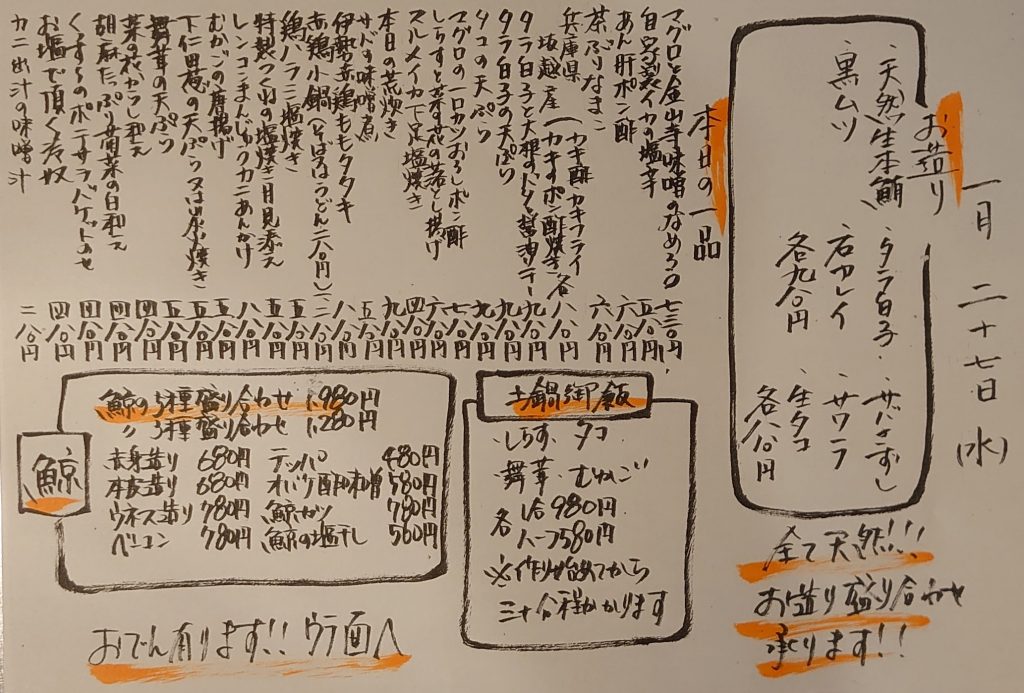 一月二十七日(水)
お造り
天然生本鮪・タラ白子・サバきずし
黒ムツ 石カレイ サワラ
生タコ
各九八〇円 各八〇円
全て天然!!!
お造り盛り合わせ
承ります!!
本日の一品
マグロと金山寺味噌のなめろう 七三〇円
自家製イカの塩辛 五八〇円
あん肝ポン酢 六八〇円
茶ぶりなまこ 六八〇円
兵庫県
坂越産(カキ酢カキフライ
(カキのポン酢焼き)各 八八〇円
タラ白子と大根のバター醤油ソテー 九八〇円
タラ白子の天ぷら 九八〇円
タコの天ぷら 九八〇円
マグロの一口カツおろしポン酢 七八〇円
しらすと菜の花の落とし揚げ 六八〇円
スルメイカ下足塩焼き 四八〇円
本日の荒炊き 九八〇円
サバの味噌煮 五八〇円
伊勢赤鶏ももタタキ 八八〇円
赤鶏小鍋(そばorうどん二八〇円)
鶏ハラミ塩焼き 五八〇円
特製つくねの塩焼き 月見添え 五八〇円
レンコンまんじゅうカニあんかけ 八八〇円
むかごの唐揚げ 五八〇円
下仁田葱の天ぷらorは炭火焼き 五八〇円
舞茸の天ぷら 五八〇円
菜の花からし和え 四八〇円
胡麻たっぷり菊菜の白和え 四八〇円
くずきりのポテサラバケットのせ 四八〇円
お塩で頂く冷奴 四八〇円
カニ出汁の味噌汁 二八〇円
土鍋御飯
しらす・タコ
舞茸・むかご
各 1合980円
ハーフ580円
※作り始めてから
三十分程かかります
鯨
鯨の5種盛り合わせ 1,980円
〃 3種盛り合わせ 1,280円
赤身造り 680円 テッパ 480円
本皮造り 680円 オバケ酢味噌 580円
ウネス造り 780円 鯨カツ 780円
ベーコン 780円 鯨の塩干し 560円
おでん有ります!! ウラ面へ